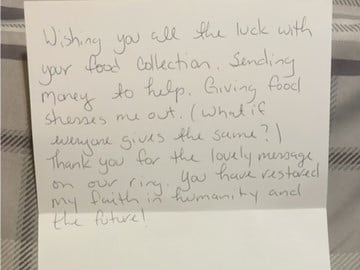 Wishing you all the luck with
your food collection. Sending
money to help. Giving food
stresses me out. (What if
everyone gives the same?)
Thank you for the lovely message
on our ring. You have restored
my faith in humanity and
the future!